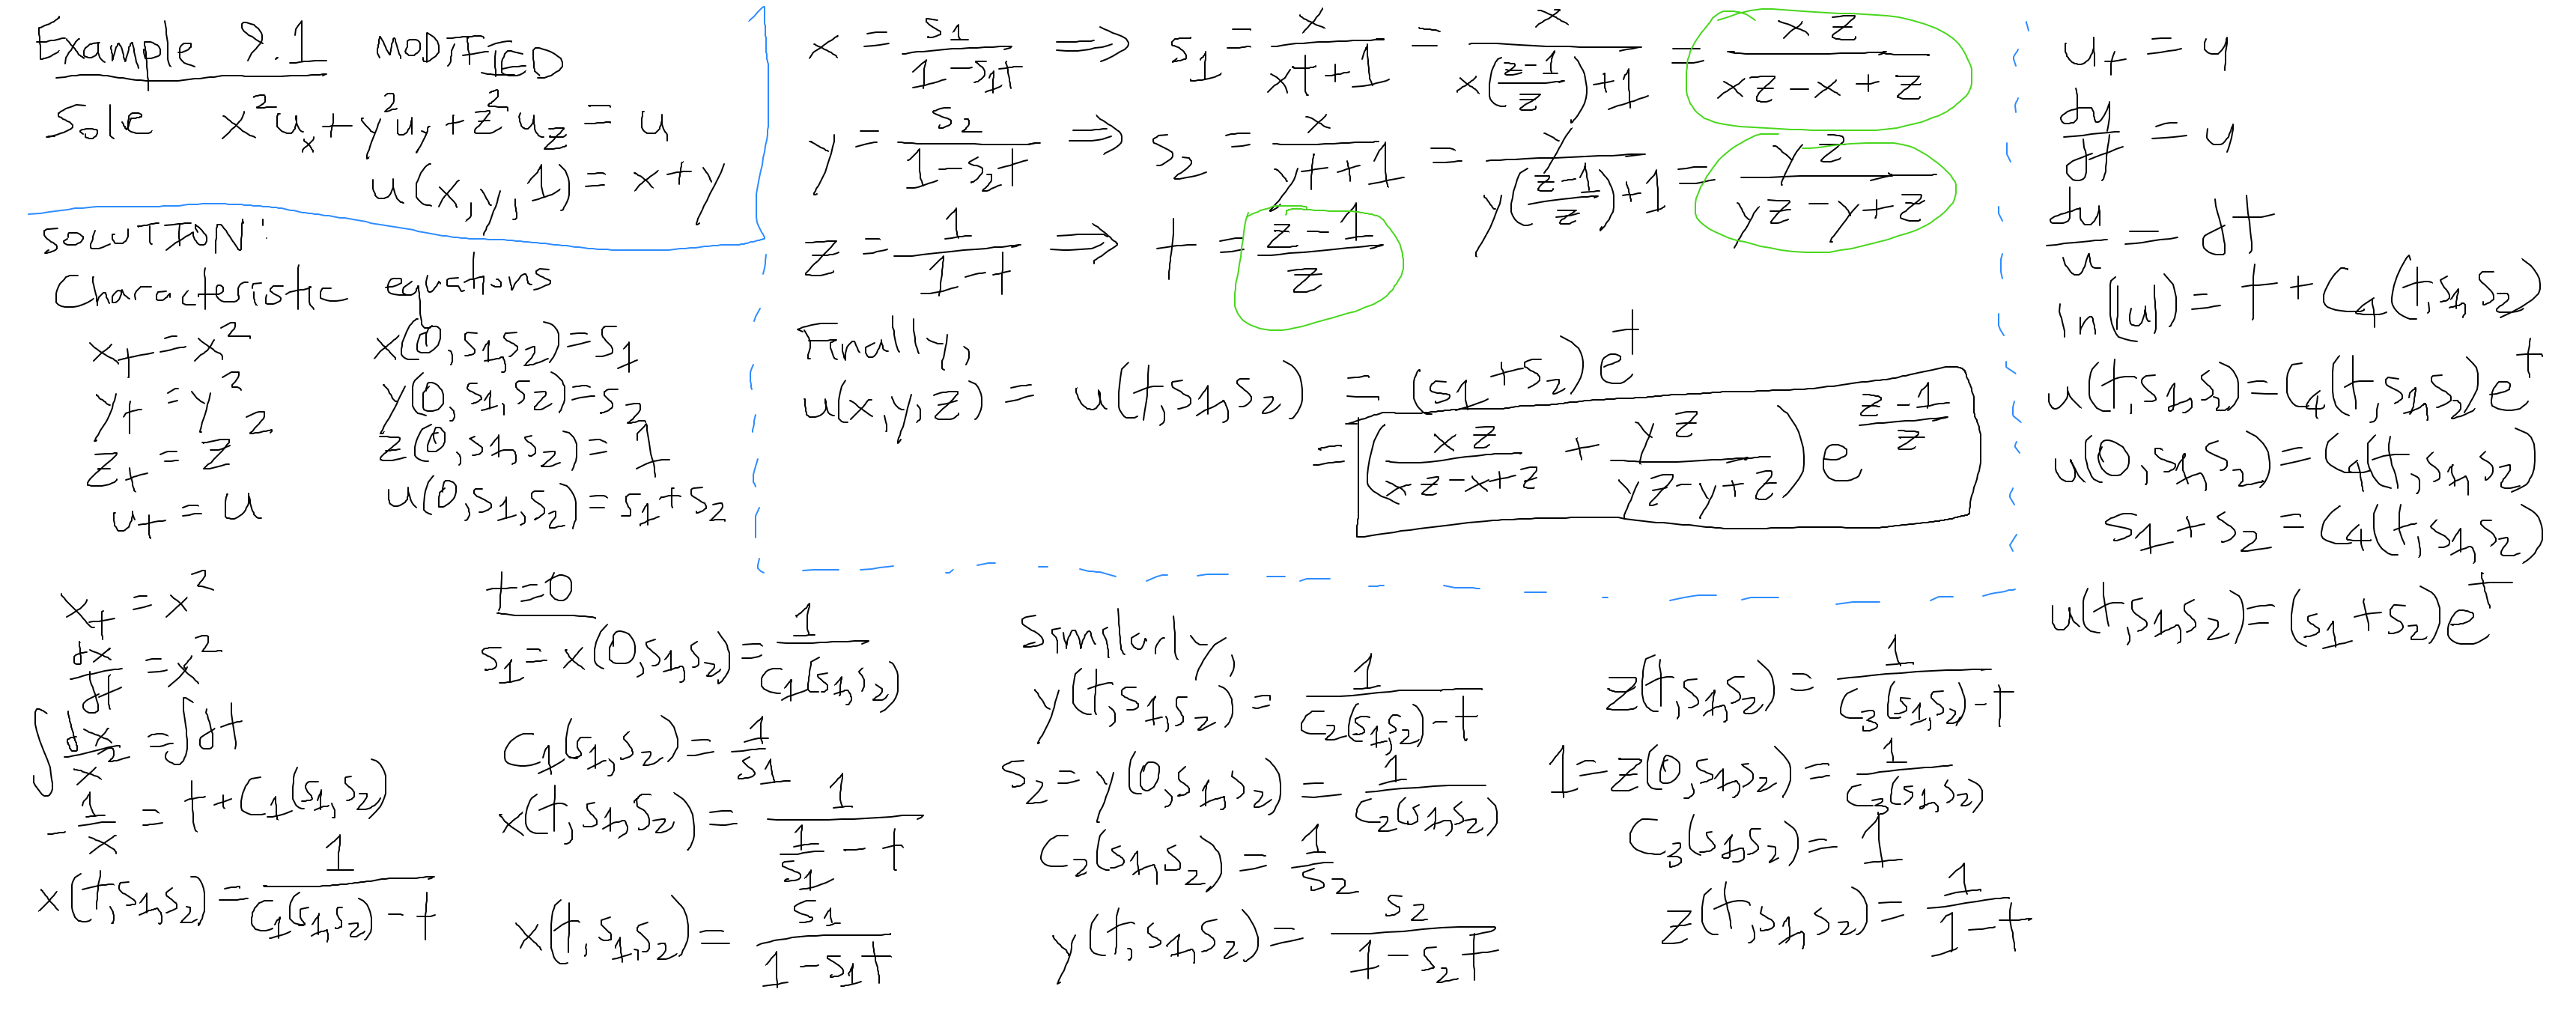 Example 9.1 MODIFIED
Solve x²uₓ + y²u_y + z²u_z = u
u(x,y,1) = x+y
SOLUTION:
Characteristic equations
x_t = x² x(0,s₁,s₂) = s₁
y_t = y² y(0,s₁,s₂) = s₂
z_t = z² z(0,s₁,s₂) = 1
u_t = u u(0,s₁,s₂) = s₁+s₂
x_t = x²
dx/dt = x²
∫ dx/x² = ∫ dt
-1/x = t + C₁(s₁,s₂)
x(t,s₁,s₂) = 1/(C₁(s₁,s₂) - t)
t=0
s₁ = x(0,s₁,s₂) = 1/C₁(s₁,s₂)
C₁(s₁,s₂) = 1/s₁
x(t,s₁,s₂) = 1/(1/s₁ - t)
x(t,s₁,s₂) = s₁/(1-s₁t)
Similarly,
y(t,s₁,s₂) = 1/(C₂(s₁,s₂) - t)
s₂ = y(0,s₁,s₂) = 1/C₂(s₁,s₂)
C₂(s₁,s₂) = 1/s₂
y(t,s₁,s₂) = s₂/(1-s₂t)
z(t,s₁,s₂) = 1/(C₃(s₁,s₂) - t)
1 = z(0,s₁,s₂) = 1/C₃(s₁,s₂)
C₃(s₁,s₂) = 1
z(t,s₁,s₂) = 1/(1-t)
x = s₁/(1-s₁t) ⟹ s₁ = x/(xt+1) = x/(x((z-1)/z)+1) = xz/(xz-x+z)
y = s₂/(1-s₂t) ⟹ s₂ = x/(yt+1) = y/(y((z-1)/z)+1) = yz/(yz-y+z)
z = 1/(1-t) ⟹ t = (z-1)/z
Finally,
u(x,y,z) = u(t,s₁,s₂) = (s₁+s₂)e^t
= (xz/(xz-x+z) + yz/(yz-y+z)) e^((z-1)/z)
u_t = u
du/dt = u
du/u = dt
ln(|u|) = t + C₄(t,s₁,s₂)
u(t,s₁,s₂) = C₄(t,s₁,s₂)e^t
u(0,s₁,s₂) = C₄(t,s₁,s₂)
s₁+s₂ = C₄(t,s₁,s₂)
u(t,s₁,s₂) = (s₁+s₂)e^t